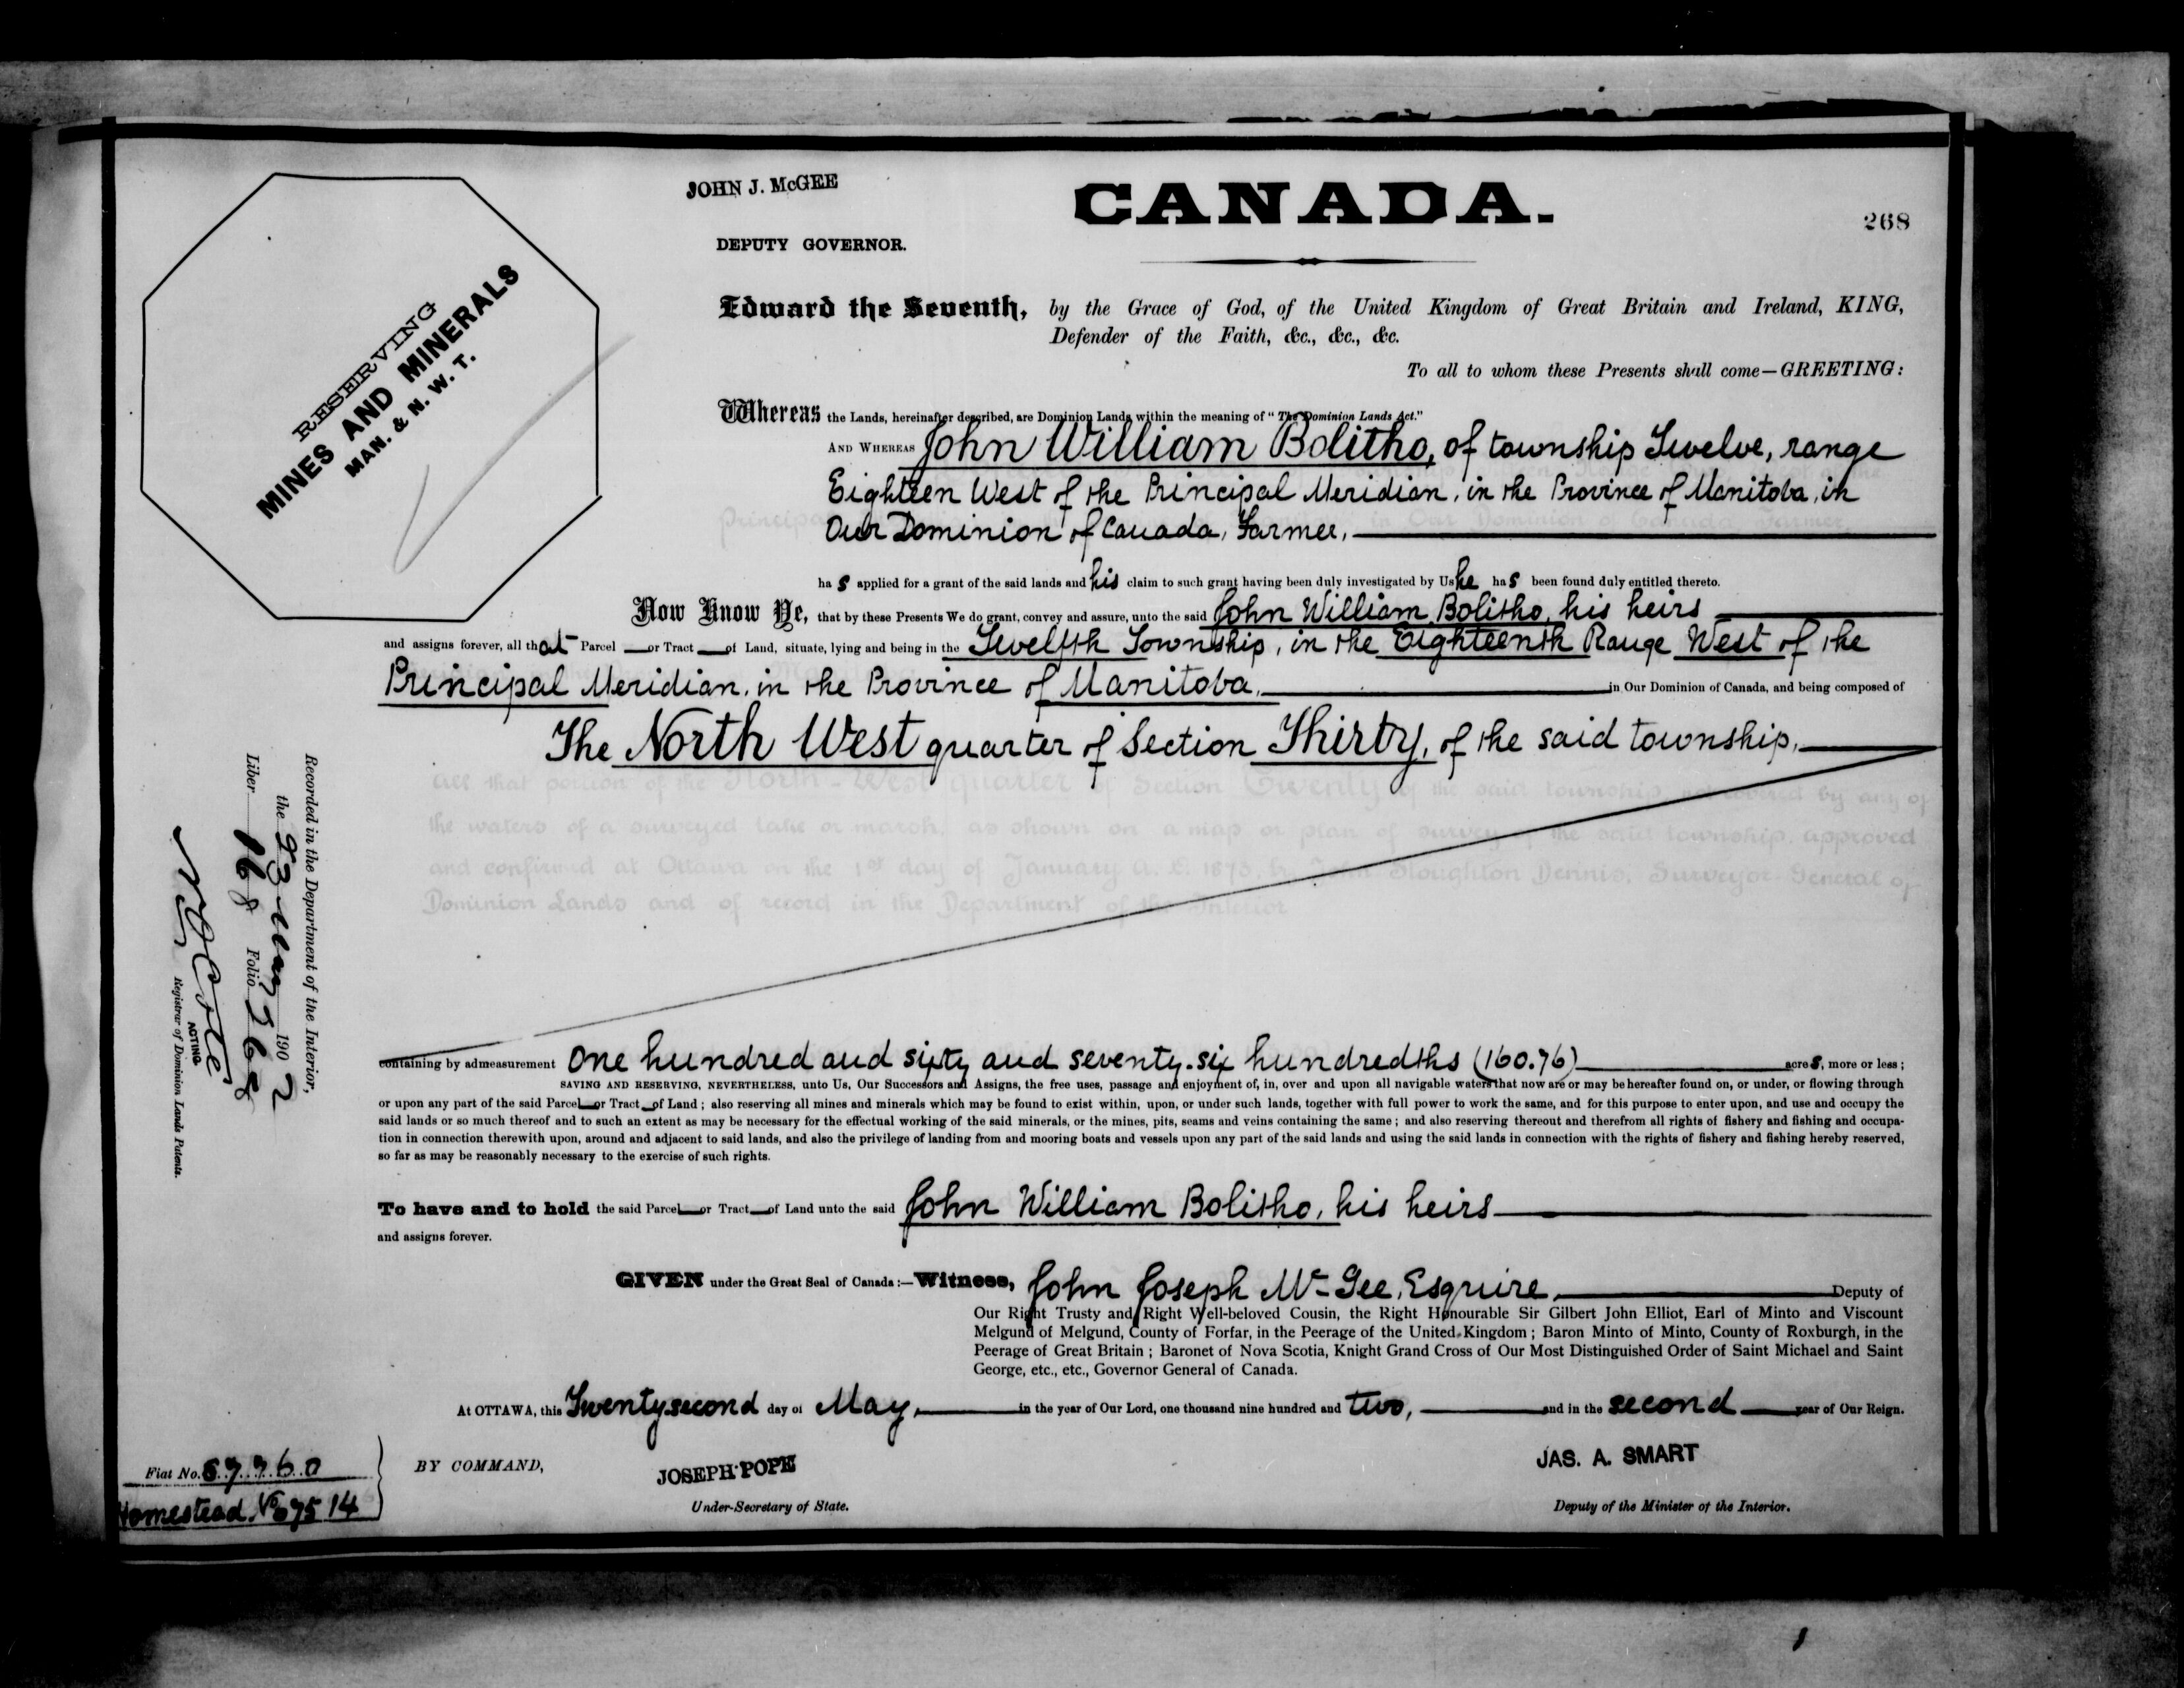 JOHN J. McGEE
CANADA.
268
DEPUTY GOVERNOR.
RESERVING
MINES AND MINERALS
MAN. & N. W. T.
Edward the Seventh, by the Grace of God, of the United Kingdom of Great Britain and Ireland, KING,
Defender of the Faith, &c., &c., &c.
To all to whom these Presents shall come—GREETING:
Whereas the Lands, hereinafter described, are Dominion Lands within the meaning of "The Dominion Lands Act."
AND WHEREAS John William Bolitho, of township Twelve, range
Eighteen West of the Principal Meridian, in the Province of Manitoba, in
Our Dominion of Canada, Farmer,
has applied for a grant of the said lands and his claim to such grant having been duly investigated by Us he has been found duly entitled thereto.
Now Know Ye, that by these Presents We do grant, convey and assure, unto the said John William Bolitho, his heirs
and assigns forever, all that Parcel or Tract of Land, situate, lying and being in the Twelfth Township, in the Eighteenth Range West of the
Principal Meridian, in the Province of Manitoba, in Our Dominion of Canada, and being composed of
The North West quarter of Section Thirty, of the said township,
all that portion of the North-West quarter of Section Twenty of the said township, not covered by any of
the waters of a surveyed lake or marsh, as shown on a map or plan of survey of the said township, approved
and confirmed at Ottawa on the 1st day of January A.D. 1873, by John Stoughton Dennis, Surveyor General of
Dominion Lands and of record in the Department of the Interior
containing by admeasurement One hundred and sixty and seventy-six hundredths (160.76) acres, more or less;
SAVING AND RESERVING, NEVERTHELESS, unto Us, Our Successors and Assigns, the free uses, passage and enjoyment of, in, over and upon all navigable waters that now are or may be hereafter found on, or under, or flowing through
or upon any part of the said Parcel or Tract of Land; also reserving all mines and minerals which may be found to exist within, upon, or under such lands, together with full power to work the same, and for this purpose to enter upon, and use and occupy the
said lands or so much thereof and to such an extent as may be necessary for the effectual working of the said minerals, or the mines, pits, seams and veins containing the same; and also reserving thereout and therefrom all rights of fishery and fishing and occupa-
tion in connection therewith upon, around and adjacent to said lands, and also the privilege of landing from and mooring boats and vessels upon any part of the said lands and using the said lands in connection with the rights of fishery and fishing hereby reserved,
so far as may be reasonably necessary to the exercise of such rights.
To have and to hold the said Parcel or Tract of Land unto the said John William Bolitho, his heirs
and assigns forever.
GIVEN under the Great Seal of Canada:—Witness, John Joseph McGee, Esquire, Deputy of
Our Right Trusty and Right Well-beloved Cousin, the Right Honourable Sir Gilbert John Elliot, Earl of Minto and Viscount
Melgund of Melgund, County of Forfar, in the Peerage of the United Kingdom; Baron Minto of Minto, County of Roxburgh, in the
Peerage of Great Britain; Baronet of Nova Scotia, Knight Grand Cross of Our Most Distinguished Order of Saint Michael and Saint
George, etc., etc., Governor General of Canada.
At OTTAWA, this Twenty second day of May, in the year of Our Lord, one thousand nine hundred and two, and in the second year of Our Reign.
BY COMMAND,
JOSEPH POPE
Under-Secretary of State.
JAS. A. SMART
Deputy of the Minister of the Interior.
Fiat No. 57760
Homestead No 67514
Recorded in the Department of the Interior,
the 23 May 1902
Liber 168 Folio 268
N O Cote
ACTING
Registrar of Dominion Lands Patents.